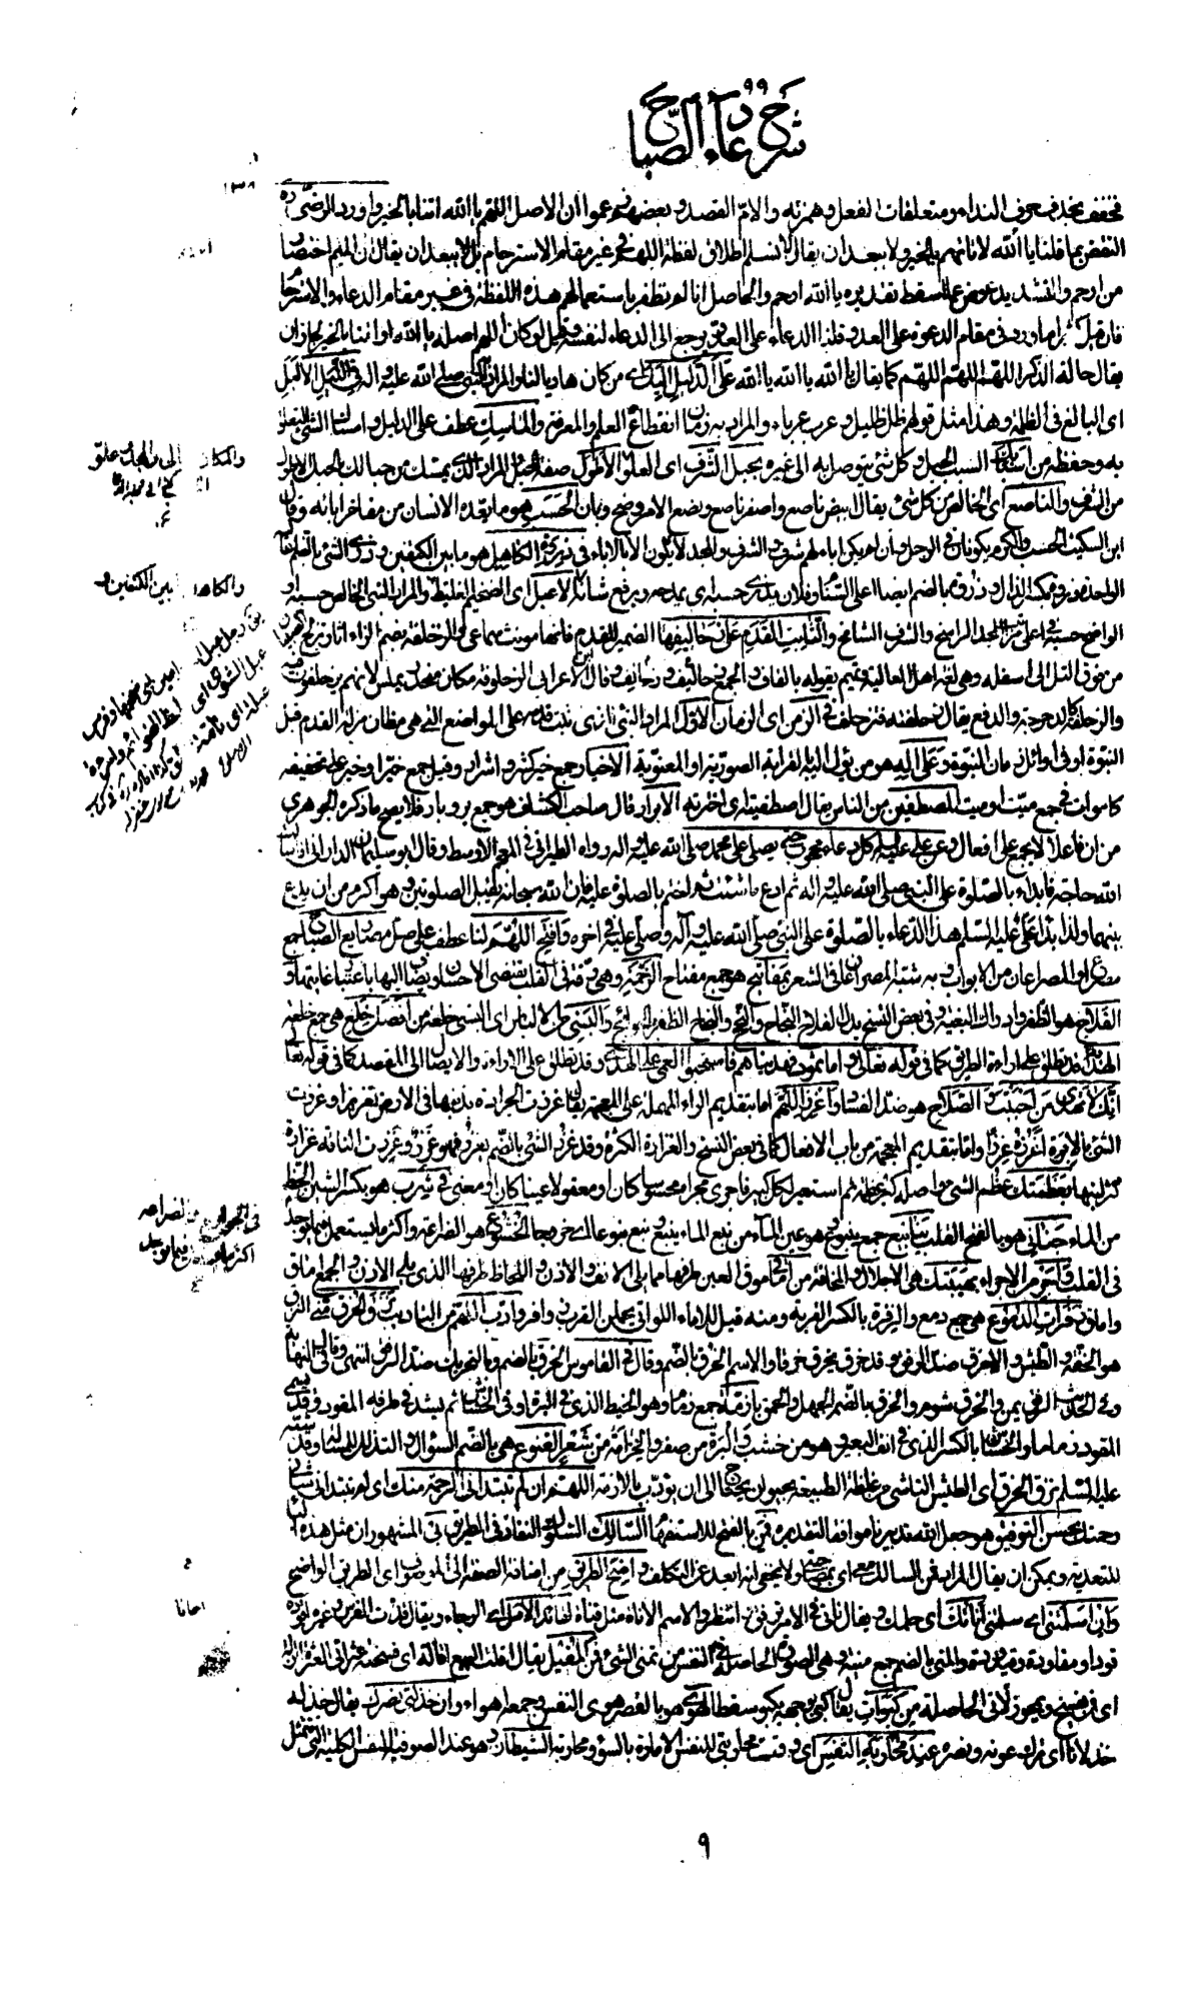 ٩٩
شرح دعاء الصباح
١٣٨
فخفف بحذف حرف النداء ومتعلقات الفعل وهمزته والامّ القصد وبعضهم زعموا ان الاصل اللهم يا الله امنا بالخير واورد الرضى ره
النقض بما قلنا يا الله لا تامهم بالخير ولا يبعد ان يقال لا نسلم اطلاق لفظة اللهم في غير مقام الاسترحام بل لا يبعد ان يقال ان الميم اختصارا
من ارحم والتشديد عوض عما سقط تقديره يا الله ارحم والحاصل انا لم نظفر باستعمالهم هذه اللفظة في غير مقام الدعاء والاسترحام
فان قيل كثيرا ما ورد في مقام الدعوة على العدو قلنا الدعاء على العدو يرجع الى الدعاء لنفسه وقيل لو كان اللهم اصله يا الله امنا بالخير لجاز ان
يقال حالة الذكر اللهم اللهم اللهم كما يقال يا الله يا الله يا الله على الدليل اليك اى من كان هاديا لنا والمراد النبى صلى الله عليه واله فى الليل الاليل
اى البالغ فى الظلمة وهذا مثل قولهم ظل ظليل وعرب عرباء والمراد به زمان انقطاع العلم والمعرفة والماسك عطف على الدليل وامساك الشئ التعلق
به وحفظه من اسبابك السبب الحبل وكل شئ يتوصل به الى غيره بحبل الشرف اى العلو الاطول صفة الحبل المراد الذى يمسك من حبالك الحبل الاطول
من الشرف والناصع اى الخالص من كل شئ يقال ابيض ناصع واصفر ناصع ونصع الامر وضح وبان الحسب هو ما يعده الانسان من مفاخر ابائه وقال
ابن السكيت الحسب والكرم يكونان فى الرجل وان لم يكن اباءه لهم شرف والشرف والمجد لا يكون الا بالاباء فى ذروة الكاهل هو ما بين الكتفين وذرى الشئ بالضم اعاليه
الواحدة ذروة بكسر الذال وذروة بالضم ايضا اعلى السنام وفلان يذرى حسبه اى يمدحه ويرفع شانه الاعبل اى الضخيم الغليظ والمراد النبى الخالص حسبه و
الواضح حسبه فى اعلى مراتب المجد الراسخ والشرف الشامخ والثابت القدم على زحاليفها الضمير للقدم فانها مونث سماعى والزحلوفة بضم الزاء اثار تزلج الصبيان
من فوق التل الى اسفله وهى لغة اهل العالية وتميم يقوله بالقاف والجمع زحالف وزحاليف وقال ابن الاعرابى الزحلوفة مكان منحدر يملس لانهم يزحلفون فيه
والزحلفة كالدحرجة والدفع يقال زحلفته فتزحلف فى الزمن اى الزمان الاول المراد النبى الذى ثبت قدمه على المواضع التى هى مظان مزلة القدم قبل
النبوة او فى اوائل زمان النبوة وعلى اله هو من يؤل اليه بالقرابة الصورية او المعنوية الاخيار جمع خير كشر واشرار وقيل جمع خير او خير على تخفيفه
كاموات فى جمع ميت او ميت المصطفين من الناس يقال اصطفيته اى اخترته الابرار قال صاحب الكشاف هو جمع بر وبار فلا يصح ما ذكره الجوهرى
من ان فاعلا لا يجمع على افعال وعن على عليه السلام كل دعاء محجوب حتى يصلى على محمد صلى الله عليه واله رواه الطبرانى فى المعجم الاوسط وقال ابو سليمان الدارانى اذا سالت
الله حاجة فابداء بالصلوة على النبى صلى الله عليه واله ثم ادع ما شئت ثم اختم بالصلوة عليه فان الله سبحانه يقبل الصلوتين وهو اكرم من ان يدع
بينهما ولذا بدا على عليه السلم هذا الدعاء بالصلوة على النبى صلى الله عليه واله وصلى عليه فى اخره وافتح اللهم لنا عطف على صل مصاريع الصباح جمع
مصراع والمصراعان من الابواب وبه شبه المصراعان فى الشعر بمفاتيح هو جمع مفتاح الرحمة وهى رقة فى القلب تقتضى الاحسان ويضاف اليها باعتبار غايتها و
الفلاح هو الظفر وادراك البغية وفى بعض النسخ بدل الفلاح النجاح والنجح والنجاح الظفر بالحوائج والبسنى من الالباس اى البسنى خلعة من افضل خلع هى جمع خلعة
الهداية قد يطلق على اراءة الطريق كما فى قوله تعالى واما ثمود فهديناهم فاستحبوا العمى على الهدى وقد يطلق على الاراءة والايصال الى المقصد كما فى قوله تعالى
انك لا تهدى من احببت والصلاح هو ضد الفساد واغرز اللهم اما بتقديم الراء المهملة على المعجمة يقال غرزت الجرادة بذنبها فى الارض تغريزا وغرزت
الشئ بالابرة اغرزه غرزا واما بتقديم المعجمة من باب الافعال كما فى بعض النسخ والغزارة الكثرة وقد غزر الشئ بالضم يغزر فهو غزير وغزرت الناقة غزارة
كثر لبنها بعظمتك عظم الشئ واصله كبر عظمه ثم استعير لكل كبير فاجرى مجراه محسوسا كان او معقولا عينا كان او معنى فى شرب هو بكسر الشين الحظ
من الماء جنانى هو بالفتح القلب ينابيع جمع ينبوع هو عين الماء من نبع الماء ينبع نبوعا اى خرج والخشوع هو الضراعة واكثر ما يستعمل فيما يوجد
فى القلب واجر من الاجراء بهيبتك هى الاجلال والمخافة من اماقى موق العين طرفها مما يلى الانف والاذن واللحاظ طرفها الذى يلى الاذن والجمع اماق
واماق زفرات الدموع هى جمع دمع والزفرة بالكسر القربة ومنه قيل للاماء اللواتى يحملن القرب زوافر وادب اللهم من التاديب نزق والخرق منى النزق
هو الخفة والطيش والاخرق ضد الرفق وقد خرق يخرق خرقا والاسم الخرق بالضم وقال فى القاموس الخرق بالضم وبالتحريك ضد الرفق انتهى وقال فى النهاية
وفى الحديث الرفق يمن والخرق شوم والخرق بالضم الجهل والحمق بازمة جمع زمام وهو الخيط الذى فى البرة او فى الخشاش ثم يشد فى طرفه المقود وقد يسمى
المقود زماما والخشاش بالكسر الذى فى انف البعير وهو من خشب والبرة من صفر والخزامة من شعر القنوع هى بالضم السؤال والتذلل للمسالة وقد شبه
عليه السلم نزق الخرق اى الطيش الناشى من غلظة الطبيعة بحيوان يحتاج الى ان يؤدب بالازمة اللهم ان لم تبتدانى الرحمة منك اى لم تبتدانى
رحمتك بحسن التوفيق هو جعل الله تقديرنا موافقا لتقديره فمن بالفتح للاستفهام السالك السلوك النفاذ فى الطريق بى المشهور ان مثل هذه الباء
للتعدية ويمكن ان يقال المراد فمن السالك معى اى بمصاحبتى ولا يخفى انه ابعد عن التكلف واضح الطريق من اضافة الصفة الى الموصوف اى الطريق الواضح
وان اسلمتنى اى سلمتنى اناتك اى حلمك ويقال تانى فى الامر ترفق وانتظر والاسم الاناة مثل قناة لقائد الامل اى الرجاء ويقال قدت الفرس وغيره اقوده
قودا ومقادة وقيدودة والمنى بالضم جمع منية وهى الصورة الحاصلة فى النفس من تمنى الشئ فمن المقيل يقال اقلت البيع اقالة اى فسخته عثراتى العثرة الزلة
اى فمن فسخ ويمحو زلاتى الحاصلة من كبوات يقال كبى لوجهه يكبو سقط الهوى هو بالقصر هوى النفس وجمعه اهواء وان خذلنى نصرك يقال خذله
خذلانا اى ترك عونه ونصره عند محاربة النفس اى وقت محاربتى للنفس الامارة بالسؤ ومحاربة الشيطان وهو عند الصوفية النفس الكلية التى تتمثل
والكاهل بين الكتفين
٩